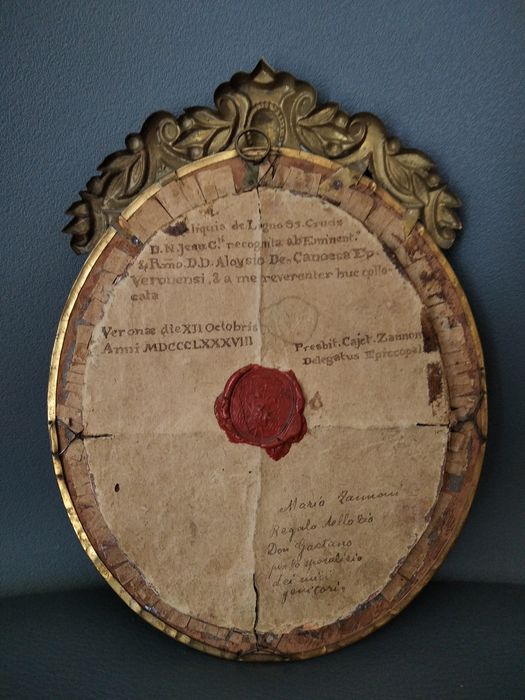 liquia de Ligno Ss. Crucis
D. N. Jesu C.ti recognita ab Eminent.
& Rmo. D. D. Aloysio De-Canossa Ep
Veronensi, & a me reverenter huc collo-
cata
Veronae die XII Octobris
Anni MDCCCLXXXVIII
Presbit. Cajet. Zannon
Delegatus Episcopal
Maria Zannoni
Regalo dello Zio
Don Gaetano
per lo sposalizio
dei miei
genitori.